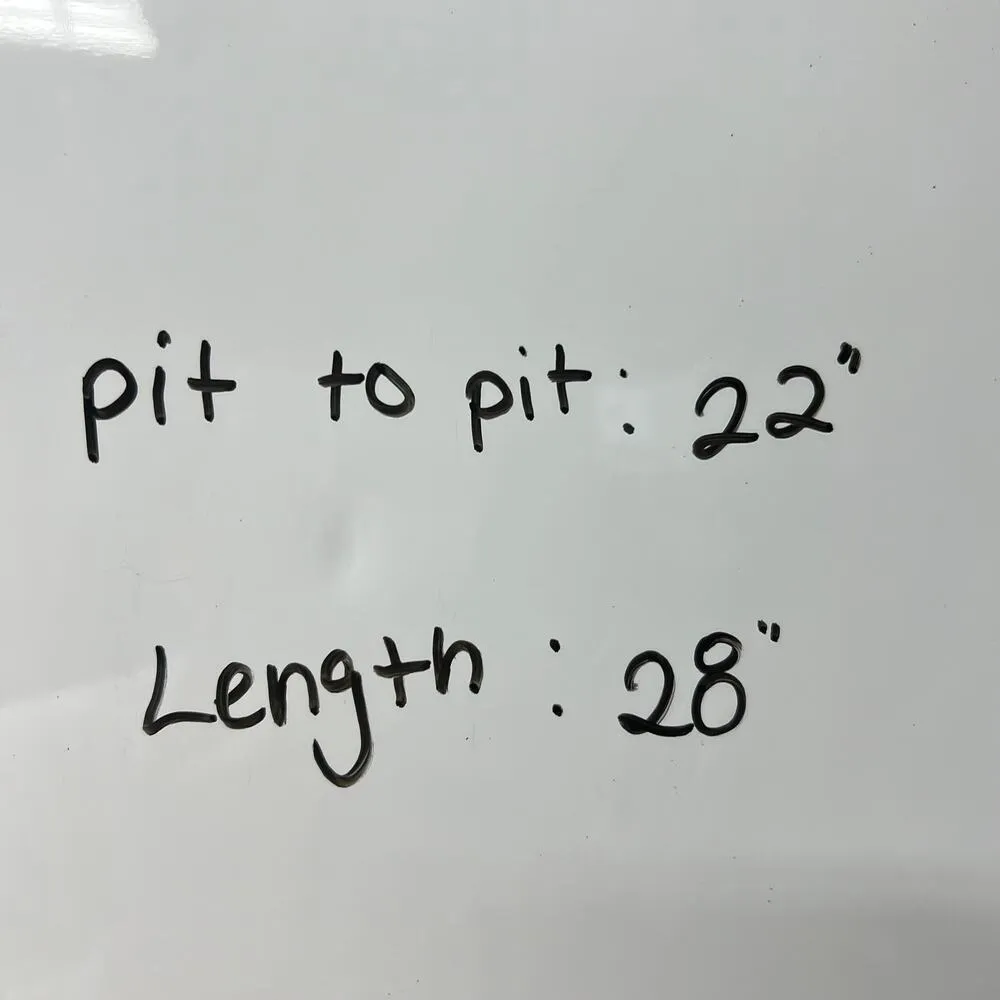 pit to pit: 22"
Length: 28"